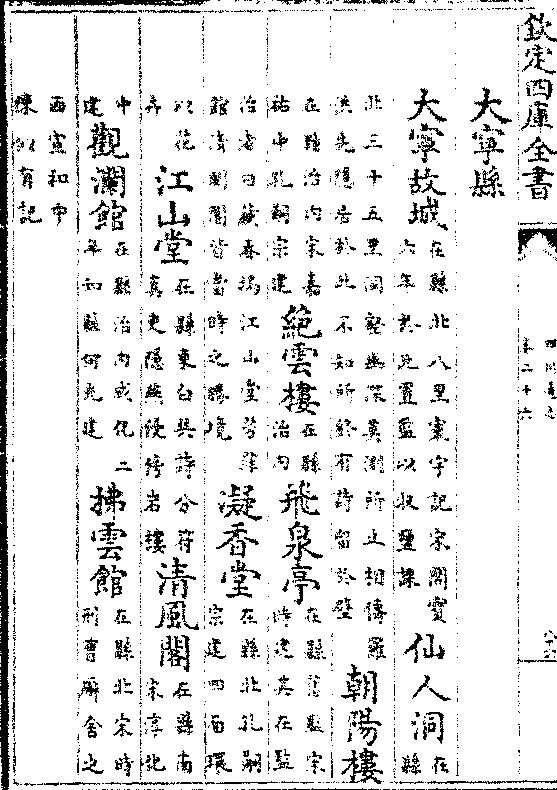 欽定四庫全書
四川通志
卷二十六
大寧縣
大寧故城 在縣北八里寰宇記宋開寶
六年於此置監以收鹽課
仙人洞 在
縣
北三十五里洞壑幽深莫測所止相傳羅
洪先隱居於此不知所終有詩留於壁
朝陽樓
在縣治内宋嘉
祐中孔嗣宗建
絶雲樓 在縣
治内
飛泉亭 在縣舊監宋
時建其在監
治者曰藏春塢江山堂芳菲
館清閒閣皆當時之勝境
凝香堂 在縣北孔嗣
宗建四面環
以花
卉
江山堂 在縣東白 詩分符
真吏隱無侵倚岩樓
清風閣 在縣南
宋淳
中
建
觀瀾館 在縣治内成化二
年知縣何光建
拂雲館 在縣北宋時
刑曹廨舍之
西宣和中
陳似有記